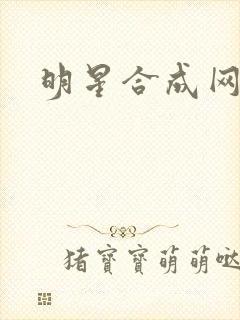 明星合成网
猪宝寶萌萌哒